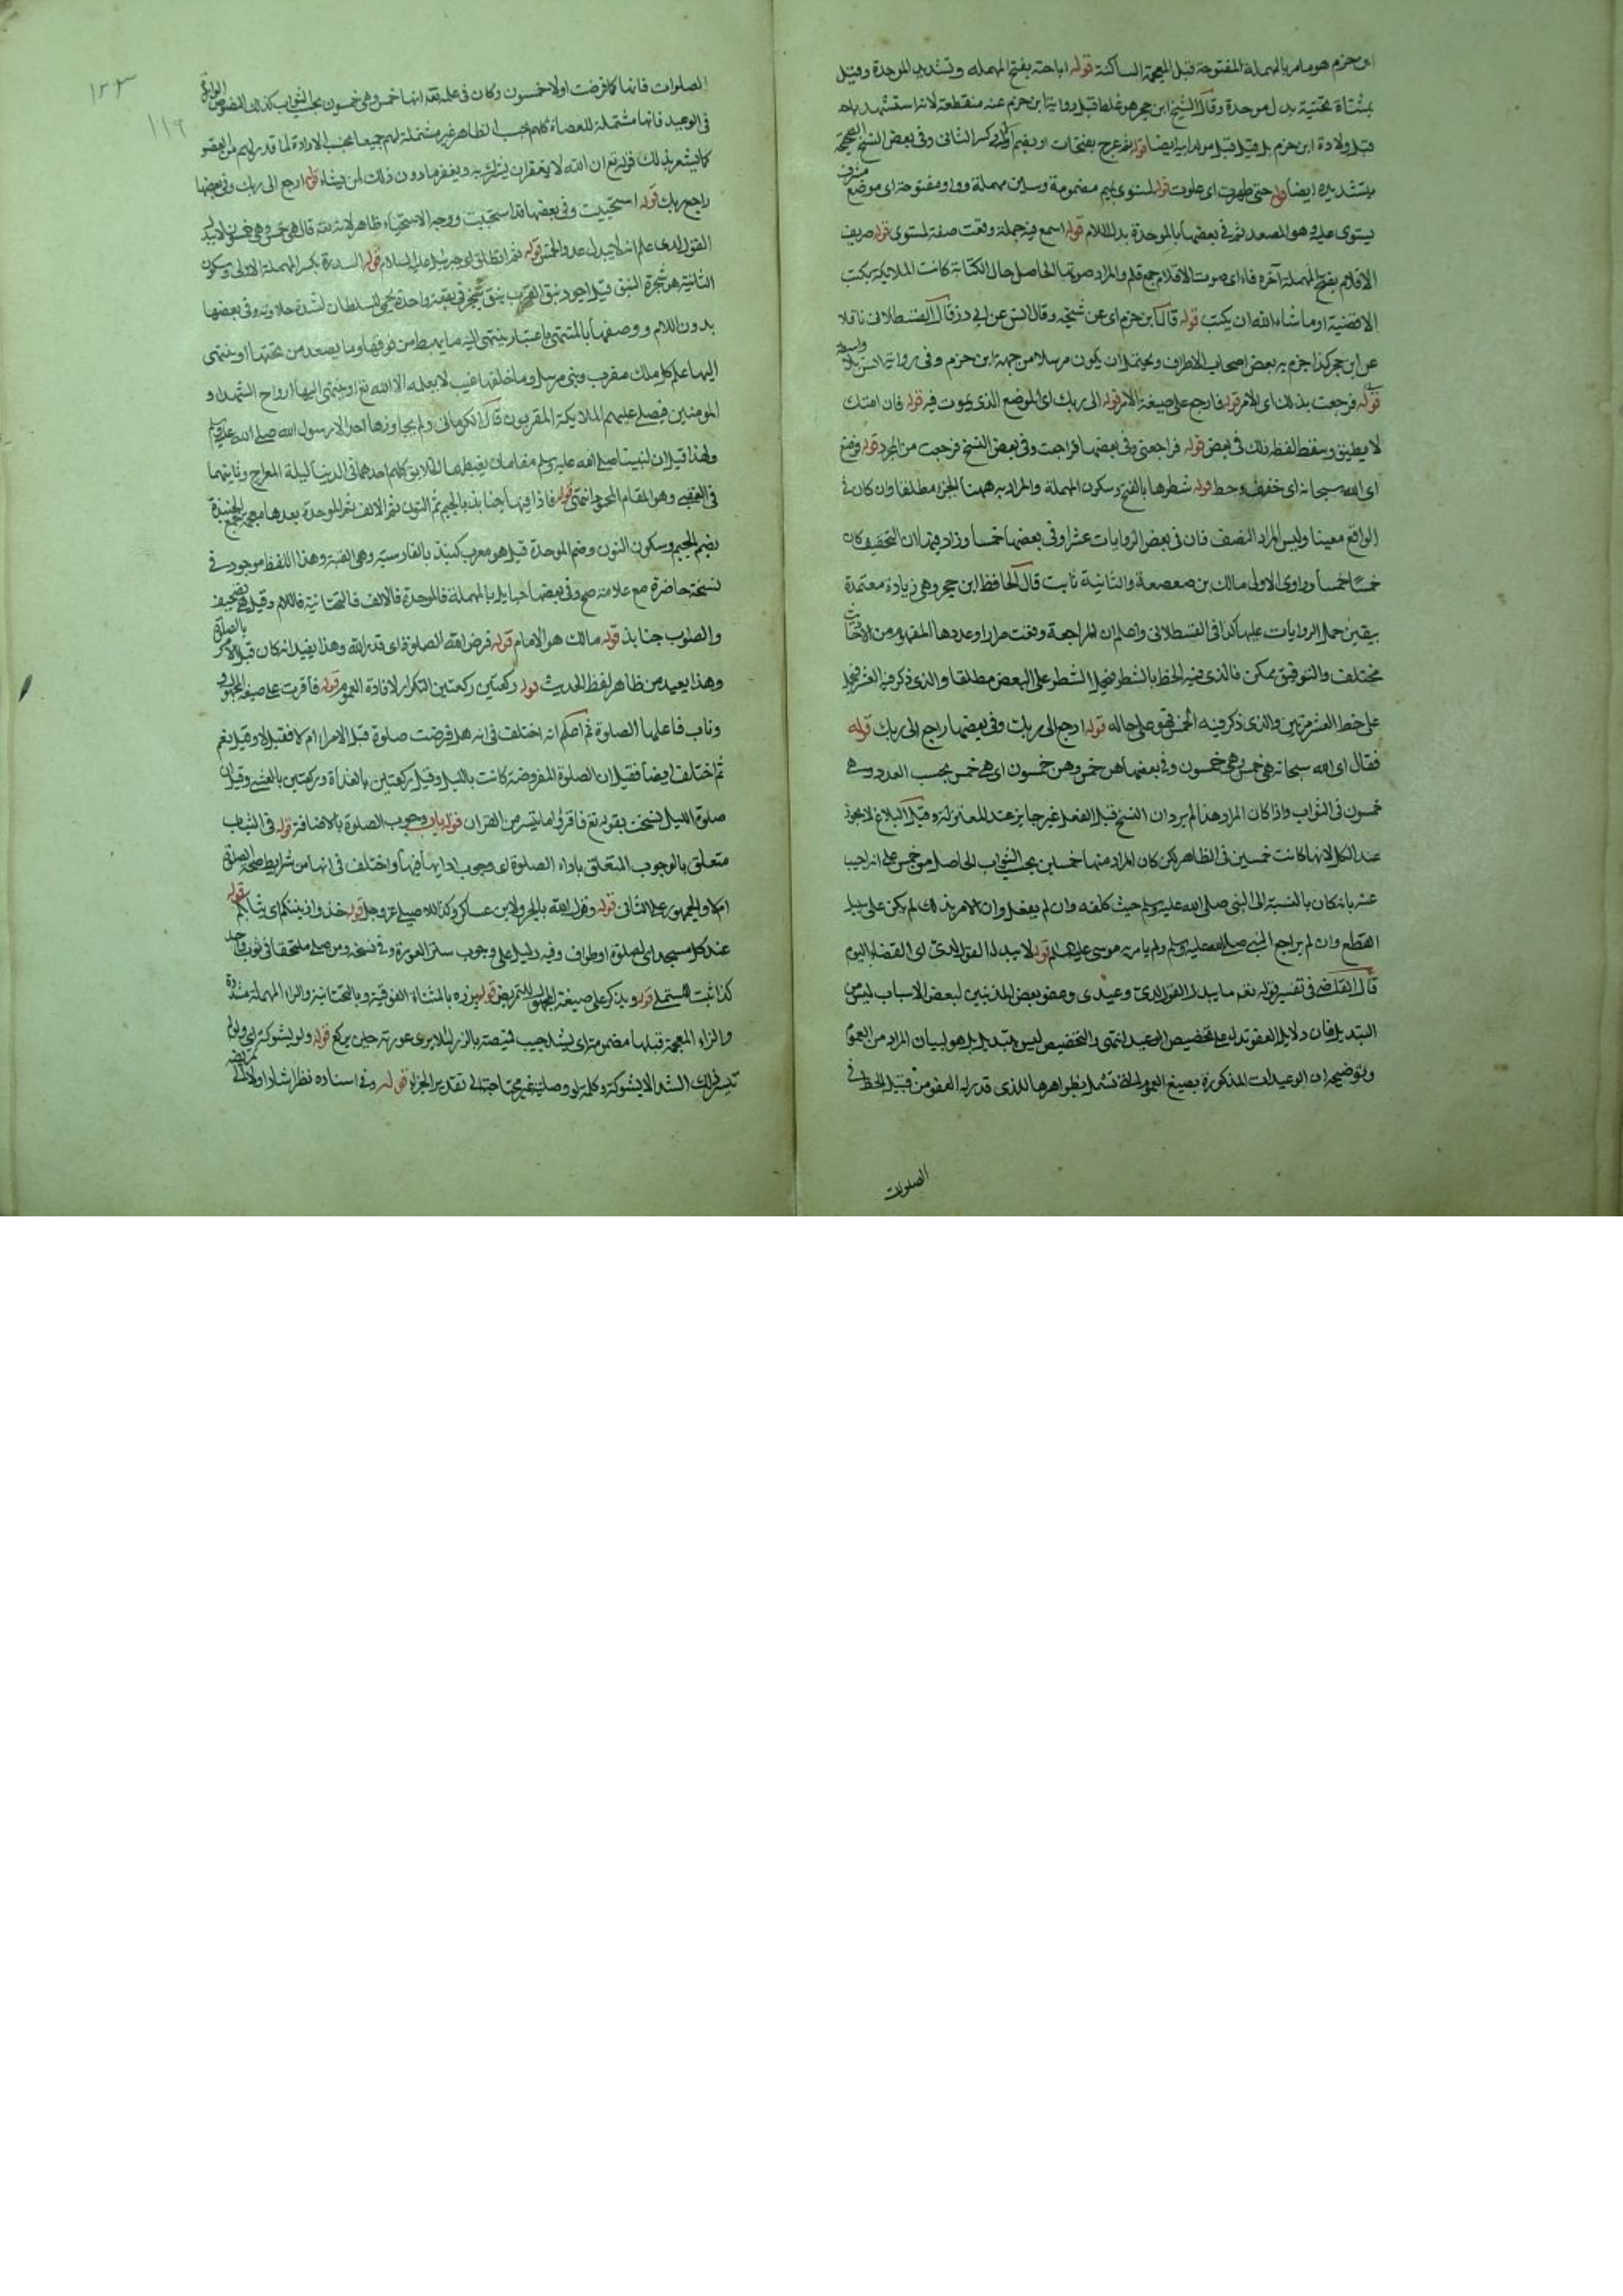 ابن حزم هو ما مر بالمهملة المفتوحة قبل المعجمة الساكنة قوله اباحته بفتح المهمله وتشديد الموحدة وقيل
بمثناة تحتية بدل موحدة وقال الشيخ ابن حجر هو غلط قيل رواية ابن حزم عنه منقطعة لانه استشهد باحد
قبل ولادة ابن حزم بل قيل قبل مولد ابيه ايضا قوله ثم عرج بفتحات او بضم الاول وكسر الثاني وفي بعض النسخ الصحيحة
بتشديده ايضا قوله حتى ظهرت اى علوت قوله لمستوى بميم مضمومة وسين مهملة وواو مفتوحة اى موضع مشرف
يستوى عليه وهو المصعد ثم في بعضها بالموحدة بدل اللام قوله اسمع فيه جملة وقعت صفة لمستوى قوله صريف
الاقلام بفتح المهملة آخره فاء اى صوت الاقلام جمع قلم والمراد صوتها الحاصل حال الكتابة كانت الملائكة يكتب
الاقضية او ما شاء الله ان يكتب قوله قال ابن حزم اى عن شيخه وقال انس عن ابى ذر قال القسطلاني ناقلا
عن ابن حجر كذا جزم به بعض اصحاب الاطراف ويحتمل ان يكون مرسلا من جهة ابن حزم وفى رواية انس بلا واسطة
قوله فرجعت بذلك اى الامر قوله فارجع على صيغة الامر قوله الى ربك اى الموضع الذى يموت فيه قوله فان امتك
لا يطيق وسقط لفظ ذلك في بعض قوله فراجعنى وفى بعضها فراجعت وفى بعض النسخ فرجعت من المجرد قوله فوضع
اى الله سبحانه اى خفف وحط قوله شطرها بالفتح وسكون المهملة والمراد به ههنا الجزء مطلقا وان كان فى
الواقع معينا وليس المراد النصف فان فى بعض الروايات عشرا وفى بعضها خمسا وزاد فيها ان التخفيف كان
خمسا خمسا وراوى الاولى مالك بن صعصعة والثانية ثابت قال الحافظ ابن حجر وهى زيادة معتمدة
يتعين حمل الروايات عليها كذا فى القسطلاني واعلم ان المراجعة وقعت مرارا وعددها المفهوم من الاحاديث
مختلف والتوفيق ممكن فالذى فيه الحط بالشطر فيحمل الشطر على البعض مطلقا والذى ذكر فيه العشر فيحمل
على حط العشر مرتين والذى ذكر فيه الخمس فهو على حاله قوله ارجع الى ربك وفى بعضها راجع الى ربك قوله
فقال اى الله سبحانه هى خمس وهى خمسون وفى بعضها هن خمس وهن خمسون اى هى خمس بحسب العدد وهى
خمسون فى الثواب واذا كان المراد هذا لم يرد ان النسخ قبل الفعل غير جايز عند المعتزلة وقبل البلاغ لا يجوز
عند الكل لانها كانت خمسين فى الظاهر لكن كان المراد منها خمسين بحسب الثواب الحاصل من خمس على انه اجيب
عنه بانه كان بالنسبة الى النبى صلى الله عليه وسلم حيث كلفه وان لم يفعل وان الامر بذلك لم يكن على سبيل
القطع وان لم يراجع النبى صلى الله عليه وسلم ولم يامر به موسى عليه السلام قوله لا يبدل القول لدى اى القضاء اليوم
قال القاضى فى تفسير قوله تعم ما يبدل القول لدى وعيدى وعفو بعض المذنبين لبعض الاسباب ليس من
التبديل فان دلايل العفو تدل على تخصيص الوعيد انتهى والتخصيص ليس بتبديل بل هو لبيان المراد من العموم
وتوضيحه ان الوعيدات المذكورة بصيغ العموم التى تشمل بظواهرها للذى قدر له العفو من قبيل الخط فى
الصلوات
١٢٣
١١٩
الصلوات فانها كما فرضت اولا خمسون وكان فى علمه تعه انها خمس وهى خمسون بحسب الثواب كذلك النصوص الواردة
فى الوعيد فانها مشتملة للعصاة كلهم بحسب الظاهر غير مشتملة لهم جميعا بحسب الارادة لما قدر لهم من العفو
كما يشعر بذلك قوله تع ان الله لا يغفر ان يشرك به ويغفر ما دون ذلك لمن يشاء قوله ارجع الى ربك وفى بعضها
راجع ربك قوله استحييت وفى بعضها قد استحييت ووجه الاستحياء ظاهر لانه تعه قال هى خمس وهى خمسون لا يبدل
القول لدى علم انه لا يبدل عدد الخمس قوله ثم انطلق بى جبرئيل عليه السلام قوله السدرة بكسر المهملة الاولى وسكون
الثانية هو شجرة النبق قيل اجود نبق العرب بنق هجر فى بقعة واحدة يحمى للسلطان لشدة حلاوته وفى بعضها
بدون اللام ووصفها بالمنتهى باعتبار ينتهى اليه ما يهبط من فوقها وما يصعد من تحتها او ينتهى
اليها علم كل ملك مقرب ونبى مرسل وما خلفها غيب لا يعلمه الا الله تع او ينتهى اليها ارواح الشهداء و
المومنين فيصلى عليهم الملايكة المقربون قال الكرمانى ولم يجاوزها احد الا رسول الله صلى الله عليه وسلم
ولهذا قيل ان لنبينا صلى الله عليه وسلم مقامان يغبطهما الخلايق كلهم احدهما فى الدنيا ليلة المعراج وثانيهما
فى العقبى وهو المقام المحمود انتهى قوله فاذا فيها جنابذ بالجيم ثم النون ثم الالف ثم الموحدة بعدها معجمة جمع الجنبذة
بضم الجيم وسكون النون وضم الموحدة قيل هو معرب كنبد بالفارسية وهى القبة وهذا اللفظ موجود فى
نسخة حاضرة مع علامة صح وفى بعضها حبايل بالمهملة فالموحدة فالالف فالتحتانية فاللام وقيل هو تصحيف
والصواب جنابذ قوله مالك هو الامام قوله فرض الله الصلوة اى قدر الله وهذا يفيد انه كان قبل الامر بالصلوة
وهذا بعيد من ظاهر لفظ الحديث قوله ركعتين ركعتين التكرار لافادة العموم قوله فاقرت على صيغة المجهول
وناب فاعلها الصلوة ثم اعلم انه اختلف فى انه هل فرضت صلوة قبل الاسراء ام لا فقيل لا وقيل نعم
ثم اختلف ايضا فقيل ان الصلوة المفروضة كانت بالليل وقيل ركعتين بالغداة وركعتين بالعشى وقيل ان
صلوة الليل نسخت بقوله تع فاقرؤا ما تيسر من القران قوله باب وجوب الصلوة بالاضافة قوله فى الثياب
متعلق بالوجوب المتعلق باداء الصلوة اى وجوب ادايها فيها واختلف فى انها من شرايط صحة الصلوة
ام لا والجمهور على الثانى قوله وقول الله بالجر ولابن عساكر وكذا للاصيلى عز وجل قوله خذوا زينتكم اى ثيابكم قوله
عند كل مسجد اى لصلوة او طواف وفيه دليل على وجوب ستر العورة وفى نسخة ومن صلى ملتحفا فى ثوب واحد
كذا ثبت للمستملى قوله ويذكر على صيغة المجهول للتمريض قوله يزره بالمثناة الفوقية وبالتحتانية والراء المهملة مشددة
والزاء المعجمة قبلها مضمومة اى يشد جيب قميصه بالازرار لئلا يرى عورته حين يركع قوله ولو بشوكة اى ولو لم
تيسر ذلك الشد الا بشوكة وكلمة لو وصلية غير محتاجة الى تقدير الجزاء قوله وفى اسناده نظر اشار اولا الى